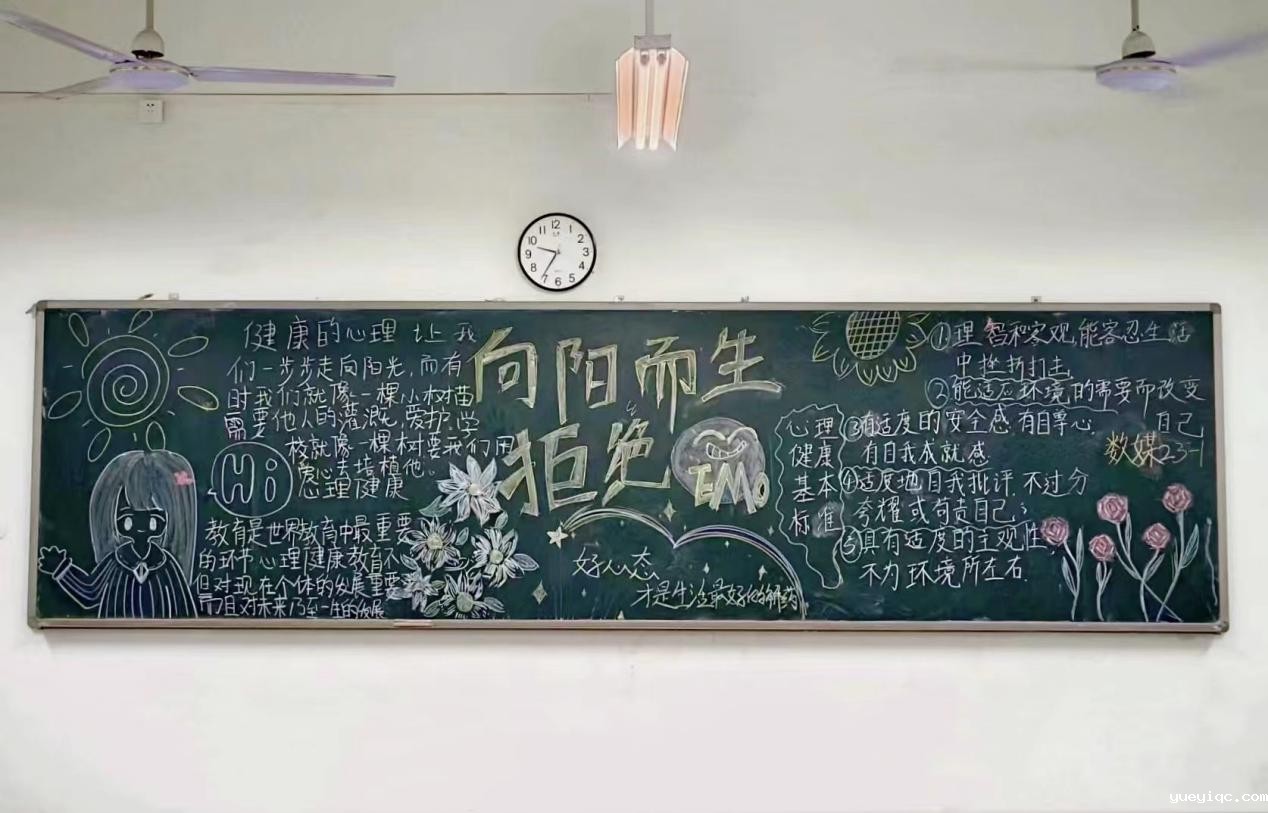 健康的心理让我
们一步步走向阳光,而有
时我们就像一棵小树苗
需要他人的灌溉,爱护.学
校就像一棵树要我们用
爱心去培植他。
心理健康
Hi
教育是世界教育中最重要
的环节,心理健康教育不
但对现在个体的发展重要
而且对未来乃至一生的发展
向阳而生
拒绝
EMO
好心态
才是生活最好的解药
心理
健康
基本
标准
①理智和客观,能容忍生活
中挫折打击
②能适应环境的需要而改变
自己
③有适度的安全感 有自尊心
有自我成就感
④适度地自我批评.不过分
夸耀或苛责自己;
⑤具有适度的主观性
不为环境所左右.
数媒23-1
12
1
2
3
4
5
6
7
8
9
10
11
yueyiqc.com